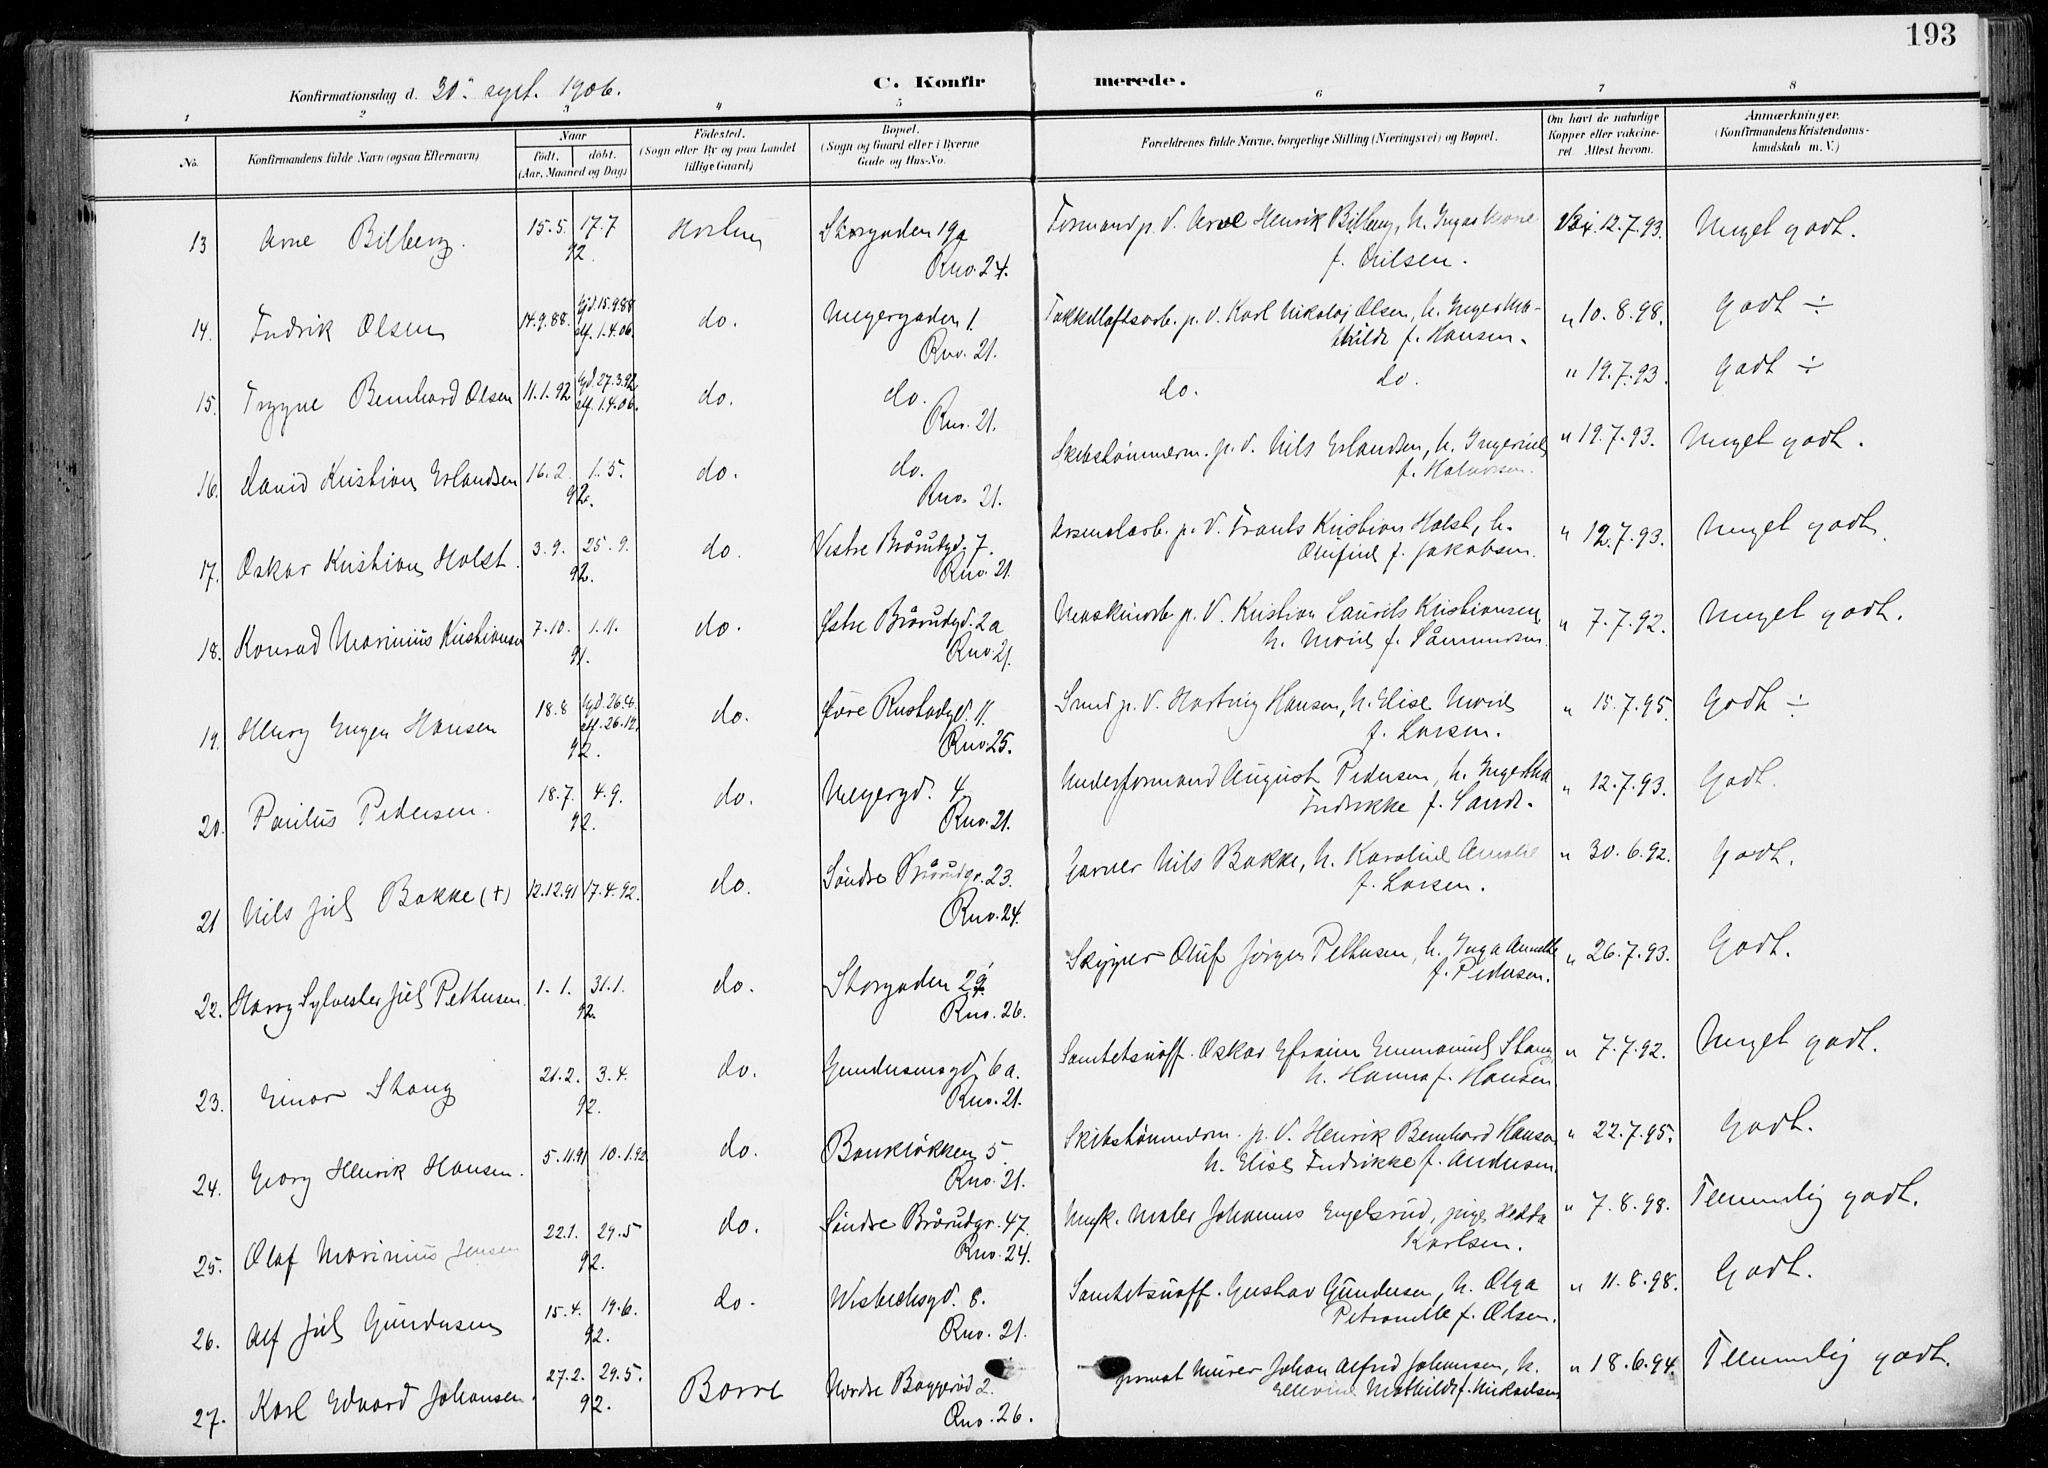 193
Konfirmationsdag d. 30. sept. 1906. C. Konfirmerede.
1 2 3 4 5 6 7 8
No. Konfirmandens fulde Navn (ogsaa Efternavn) Naar født. døbt. (Aar, Maaned og Dag) Fødested. (Sogn eller By og paa Landet tillige Gaard) Bopæl. (Sogn og Gaard eller i Byerne Gade og Hus-No. Forældrenes fulde Navne, borgerlige Stilling (Næringsvei) og Bopæl. Om havt de naturlige Kopper eller vakcineret. Attest herom. Anmærkninger. (Konfirmandens Kristendomskundskab m. V.)
13 Arne Bilberg. 15.5. 17.7 Horten Storgaden 19a Formand p. V. Arne Henrik Bilberg, h. f. Nilsen. 12.7.93. Meget godt.
92. Rno. 24.
14. Fredrik Olsen 14.9.88. Gjd. 15.9.88 do. Meyergaden 1. Takkelloftsarb. p. V. Karl Nikolaj Olsen, h. Inger Mathilde f. Hansen. " 10.8.98. Godt ÷
stf. 1.4.06. Rno. 21.
15. Trygve Bernhard Olsen 11.1.92 Gjd. 27.3.92 do. do. do. do. " 19.7.93. Godt ÷
stf. 1.4.06. Rno. 21.
16. David Kristian Erlandsen 16.2. 1.5. do. do. Skibstømmerm. p. V. Nils Erlandsen, h. f. Halvorsen. " 19.7.93. Meget godt.
92. Rno. 21.
17. Oskar Kristian Holst. 3.9. 25.9. do. Vestre Brårudgd. 7. Arsenalarb. p. V. Frants Kristian Holst, h. Olufine f. Jakobsen. " 12.7.93. Meget godt.
92. Rno. 21.
18. Konrad Marinius Kristiansen 7.10. 1.11. do. Østre Brårudgd. 2a Maskinarb. p. V. Kristian Laurits Kristiansen, h. Marie f. Såmundsen. " 7.7.92. Meget godt.
91. Rno 21.
19. Henry Eugen Hansen 18.8 stf. 26.12. do. Øvre Rustadgd. 11. Smed p. V. Hartvig Hansen, h. Elise Marie f. Larsen. " 15.7.95. Godt ÷
92. Rno 25.
20. Paulus Pedersen. 18.7. 4.9. do. Meyergd. 4. Underformand August Pedersen, h. Fredrikke f. Sande. " 12.7.93. Godt.
92. Rno. 21.
21 Nils Juel Bakke (+) 12.12.91 17.4.92. do. Søndre Brårudgr. 23. Garver Nils Bakke, h. Karoline Amalie f. Larsen. " 30.6.92. Godt.
Rno. 24.
22. Harry Sylvester Juel Pettersen. 1.1. 31.1. do. Storgaden 29 Skipper Oluf Jørgen Pettersen, h. Inga Annette f. Pedersen. " 26.7.93. Godt.
92. Rno. 26.
23. Einar Stang 21.2. 3.4. do. Gundersensgd. 6a. Santetsuoff. Oskar Efraim Emmanuel Stang, h. Hanna f. Hansen. " 7.7.92. Meget godt.
92. Rno. 21.
24. Georg Henrik Hansen. 5.11.91 10.1.92 do. Bankløkken 5. Skibstømmerm. p. V. Henrik Bernhard Hansen h. Elise Fredrikke f. Andersen. " 22.7.95. Godt.
Rno. 21.
25. Olaf Marinius Jensen 22.1. 29.5 do. Søndre Brårudgr. 47. Ungk. Maler Johannes Engelsrud, pige Hedda Karlsen. " 7.8.98. Temmelig godt.
92. Rno. 24.
26. Alf Juel Gundersen 15.4. 19.6. do. Wistechsgd. 8. Santetsuoff. Gustav Gundersen, h. Olga Petronelle f. Olsen. " 11.8.98. Godt.
92. Rno. 21.
27. Karl Edvard Johansen. 27.2. 29.5. Borre Nordre Baggerød 2. Murer Johan Alfred Johansen, h. Ellevine Mathilde f. Mikaelsen " 18.6.94. Temmelig godt.
92. Rno. 26.